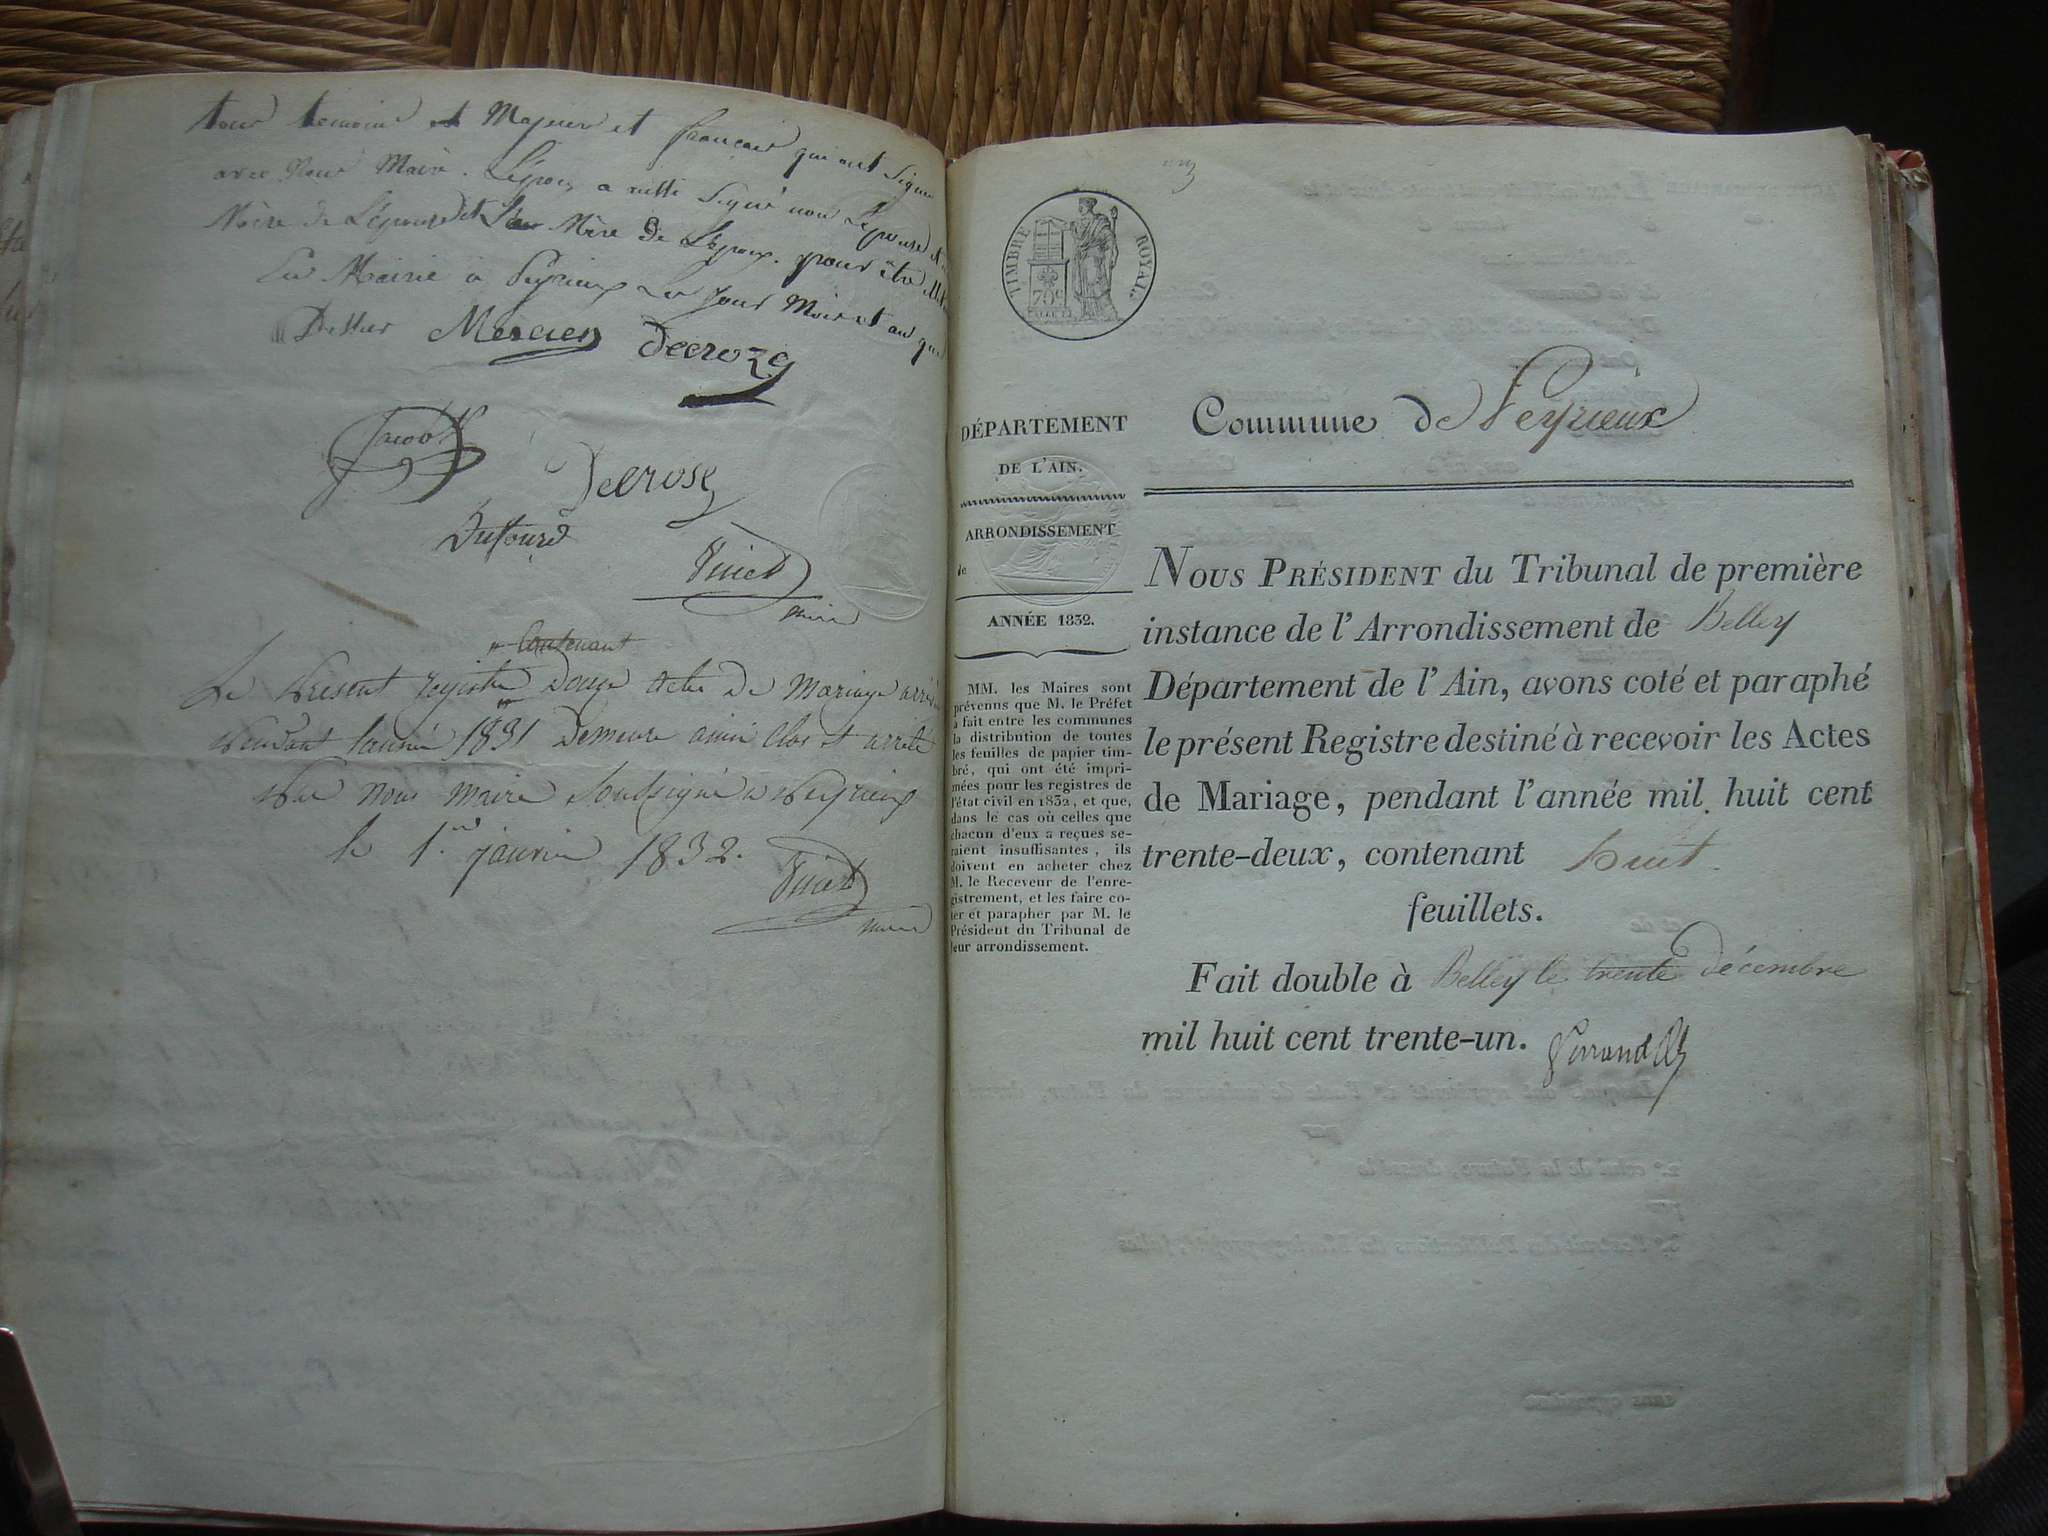 tous temoins et Majeurs et français qui ont signé
avec Nous Maire. L'époux a aussi Signé non L'épouse
Mère de L'épouse et Mère de L'époux. pour être
En Mairie à Peyrieux Les Jour Mois et an que
Dessus Mercier Decroze
Jacob
Decrose
Dufourd
Vuict
maire
Contenant
Le Present registre Douze Actes De Mariage
Pendant l'année 1831 Demeure ainsi Clos et arrêté
Par nous maire Soussigné a Peyrieux
le 1er janvier 1832.
Vuict
maire
TIMBRE ROYAL
70c
Commune de Peyrieux
DÉPARTEMENT
DE L'AIN.
ARRONDISSEMENT
de
ANNÉE 1832.
MM. les Maires sont
prévenus que M. le Préfet
a fait entre les communes
la distribution de toutes
les feuilles de papier tim-
bré, qui ont été impri-
mées pour les registres de
l'état civil en 1832, et que,
dans le cas où celles que
chacun d'eux a reçues se-
raient insuffisantes, ils
doivent en acheter chez
M. le Receveur de l'enre-
gistrement, et les faire co-
ter et parapher par M. le
Président du Tribunal de
leur arrondissement.
NOUS PRÉSIDENT du Tribunal de première
instance de l'Arrondissement de Belley
Département de l'Ain, avons coté et paraphé
le présent Registre destiné à recevoir les Actes
de Mariage, pendant l'année mil huit cent
trente-deux, contenant huit
feuillets.
Fait double à Belley le trente décembre
mil huit cent trente-un.